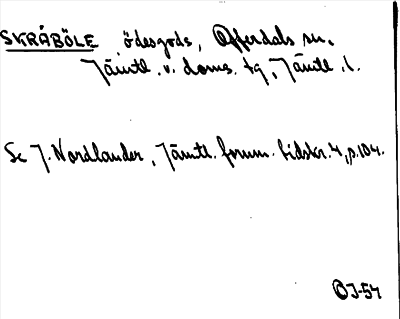 SKRÅBÖLE, ödesgods, Offerdals sn.
Jämtl. v. doms. tg, Jämtl. l.
Se J. Nordlander, Jämtl. fornm. tidskr. 4, p. 104.
OJ-54